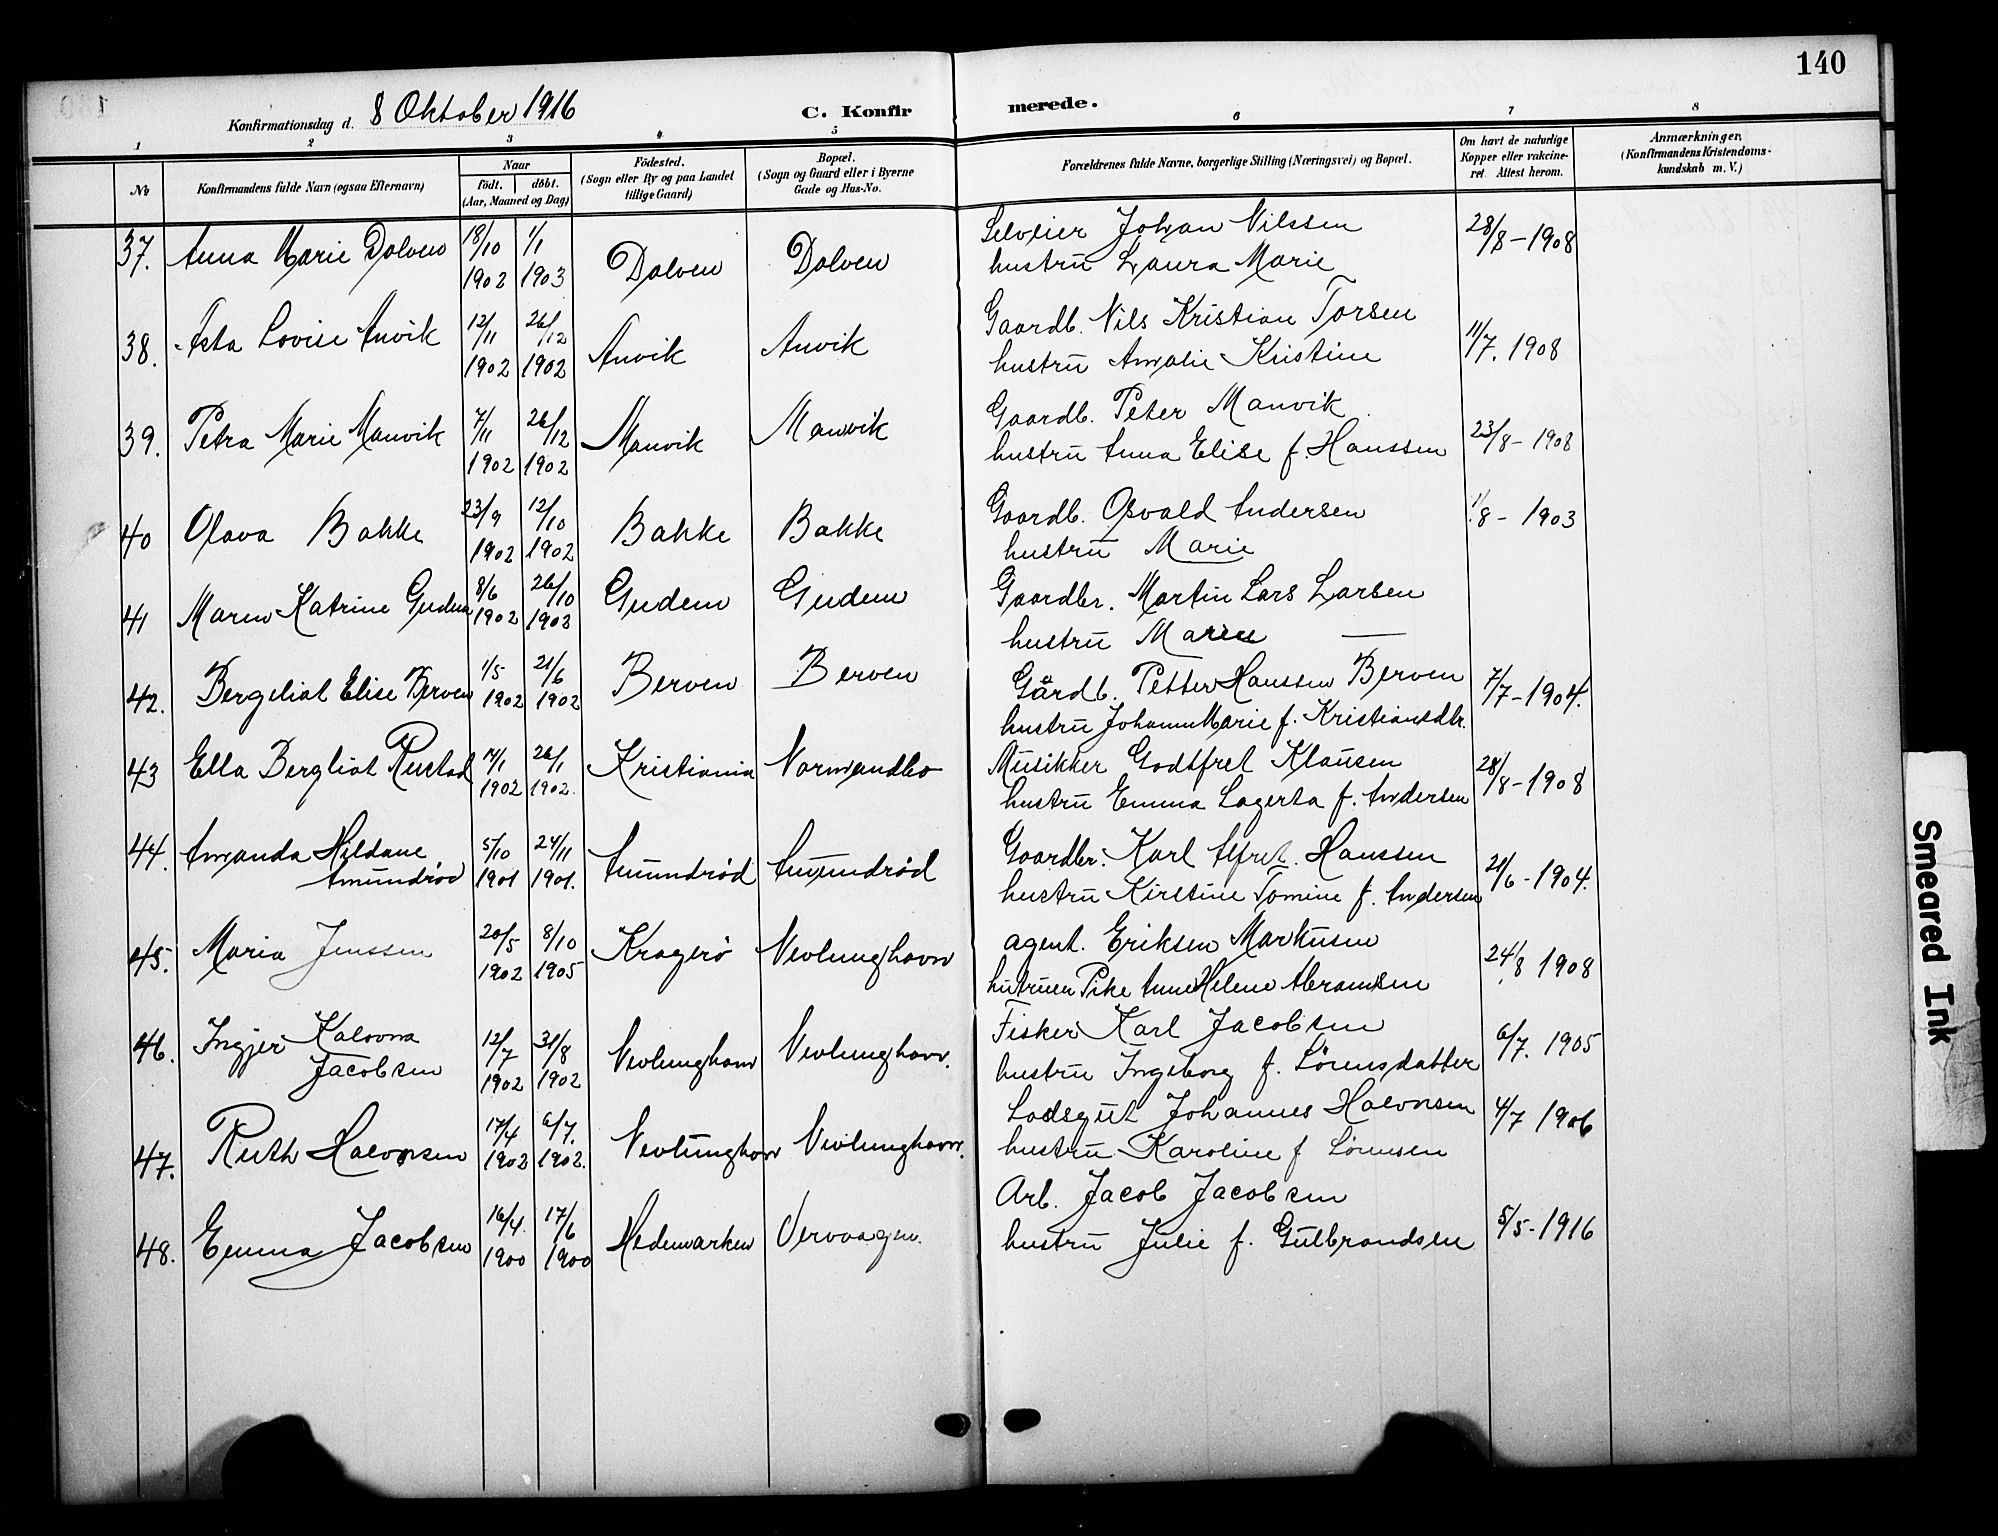 140
Konfirmationsdag d. 8 Oktober 1916 C. Konfirmerede.
1 2 3 4 5 6 7 8
No Konfirmandens fulde Navn (ogsaa Efternavn) Naar födt. döbt. (Aar, Maaned og Dag) Födested. (Sogn eller By og paa Landet tillige Gaard) Bopæl. (Sogn og Gaard eller i Byerne Gade og Hus-No. Forældrenes fulde Navne, borgerlige Stilling (Næringsvei) og Bopæl. Om havt de naturlige Kopper eller vakcineret. Attest herom. Anmærkninger. (Konfirmandens Kristendomskundskab m. V.)
37. Anna Marie Dolven 18/10 1902 1/1 1903 Dolven Dolven Selveier Johan Nilssen 28/8 - 1908
hustru Laura Marie
38. Asta Lovise Anvik 12/11 1902 26/12 1902 Anvik Anvik Gaardb. Nils Kristian Torsen 11/7. 1908
hustru Amalie Kristine
39. Petra Marie Manvik 7/11 1902 26/12 1902 Manvik Manvik Gaardb. Peter Manvik 23/8 - 1908
hustru Anna Elise f. Hanssen
40 Olava Bakke 23/9 1902 12/10 1902 Bakke Bakke Gaardb. Osvald Andersen 1/8 - 1903
hustru Marie
41 Maren Katrine Gudem 8/6 1902 26/10 1902 Gudem Gudem Gaardbr. Martin Lars Larsen
hustru Maren —
42. Bergeliot Elise Berven 1/5 1902 21/6 1902 Berven Berven Gårdb. Petter Hanssen Berven 7/7 - 1904.
hustru Johanne Marie f. Kristiansdtr.
43 Ella Bergliot Rustad 14/1 1902 26/1 1902. Kristiania Normandbo Musikker Godtfret Klausen 28/8 - 1908
hustru Emma Lagerta f. Andersen
44. Amanda Hildane Amundrød 5/10 1901 24/11 1901. Amundrød Amundrød Gaardbr. Karl Alfret. Hanssen 21/6 - 1904.
hustru Kirstine Tomine f. Andersen
45. Maria Jenssen 20/5 1902 8/10 1905 Kragerø Nevlunghavn agent. Eriksen Markusen 24/8 1908
Pike Anne Helene Abramsen
46. Ingjer Kalovna Jacobsen 12/7 1902 31/8 1902 Nevlunghavn Nevlunghavn. Fisker Karl Jacobsen 6/7. 1905
hustru Ingeborg f. Lörensdatter
47. Ruth Halvorsen 17/4 1902 6/7. 1902. Nevlunghavn Nevlunghavn. Lodsgut Johannes Halvorsen 4/7 1906
hustru Karoline f Lörensen
48. Emma Jacobsen 16/4. 1900 17/6 1900 Hedemarken Vervaagen. Arb. Jacob Jacobsen 5/5 - 1916
hustru Julie f. Gulbrandsen
Smeared Ink